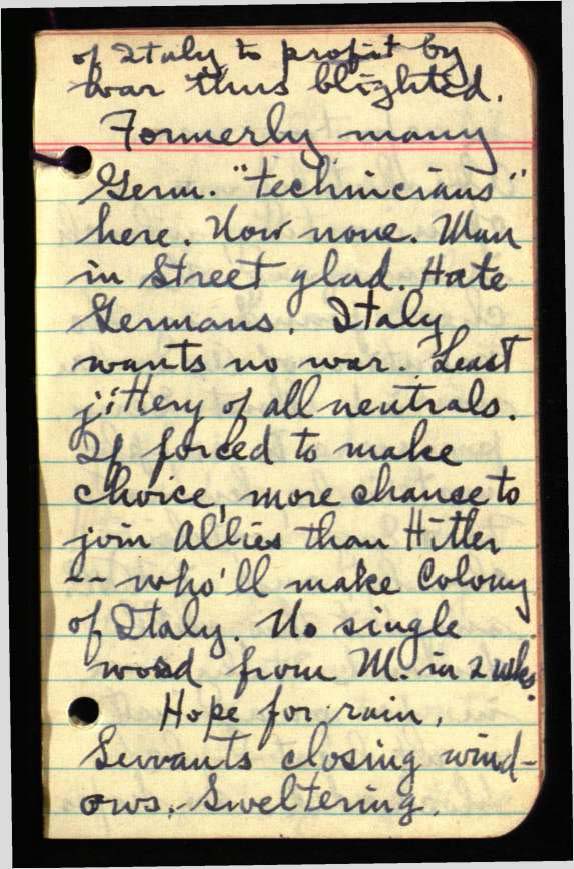 of Italy to profit by
war thus blighted.
Formerly many
Germ. "technicians"
here. Now none. Man
in Street glad. Hate
Germans. Italy
wants no war. Least
jittery of all neutrals.
If forced to make
choice, more chance to
join Allies than Hitler
-- who'll make Colony
of Italy. No single
word from M. in 2 wks.
Hope for rain.
Servants closing wind-
ows. Sweltering.